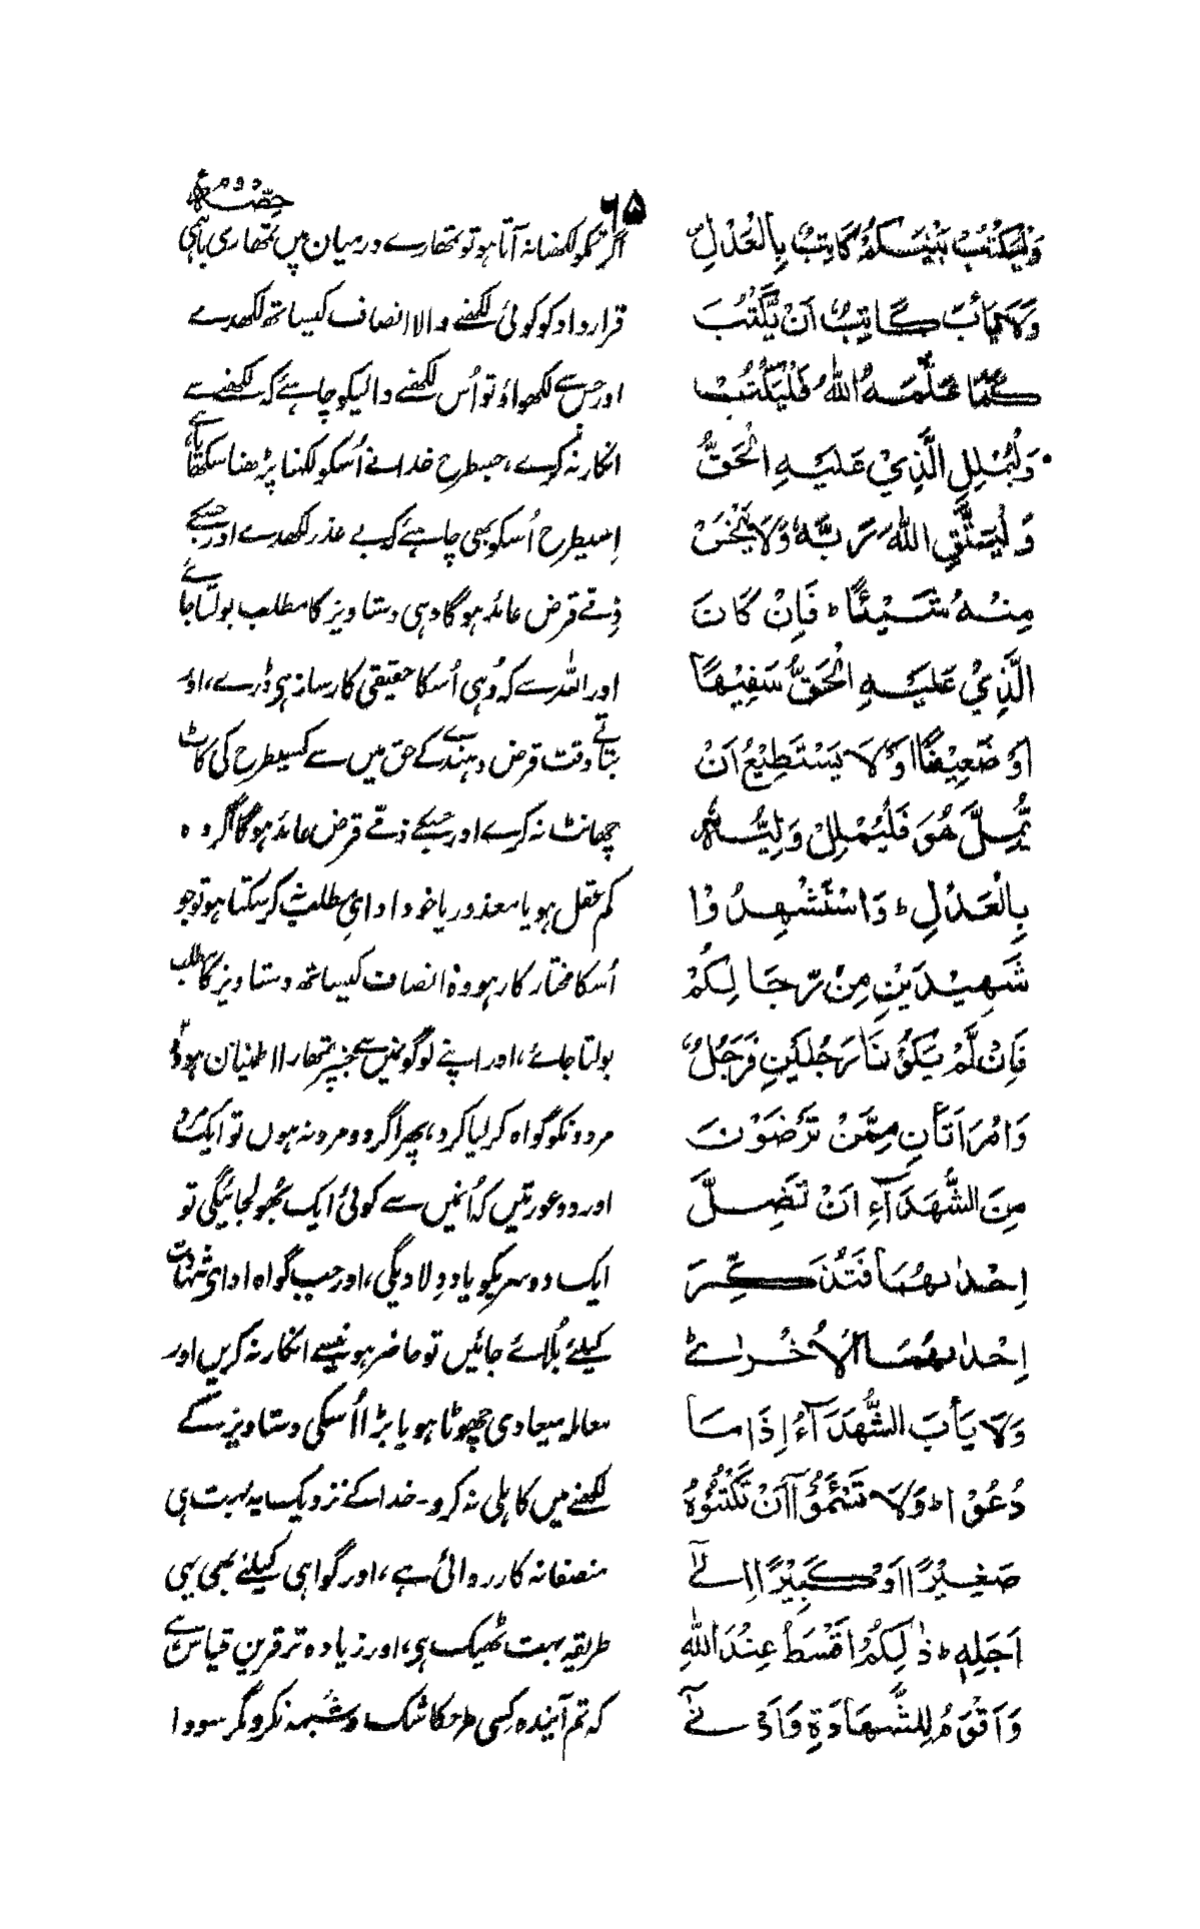 ۶۵
حصہ دوم
وَلْيَكْتُبْ بَيْنَكُمْ كَاتِبٌ بِالْعَدْلِ
وَلَا يَأْبَ كَاتِبٌ اَنْ يَّكْتُبَ
كَمَا عَلَّمَهُ اللّٰهُ فَلْيَكْتُبْ
وَلْيُمْلِلِ الَّذِيْ عَلَيْهِ الْحَقُّ
وَلْيَتَّقِ اللّٰهَ رَبَّهٗ وَلَا يَبْخَسْ
مِنْهُ شَيْئًا ط فَاِنْ كَانَ
الَّذِيْ عَلَيْهِ الْحَقُّ سَفِيْهًا
اَوْ ضَعِيْفًا اَوْ لَا يَسْتَطِيْعُ اَنْ
يُّمِلَّ هُوَ فَلْيُمْلِلْ وَلِيُّهٗ
بِالْعَدْلِ ط وَاسْتَشْهِدُوْا
شَهِيْدَيْنِ مِنْ رِّجَالِكُمْ
فَاِنْ لَّمْ يَكُوْنَا رَجُلَيْنِ فَرَجُلٌ
وَامْرَاَتَانِ مِمَّنْ تَرْضَوْنَ
مِنَ الشُّهَدَآءِ اَنْ تَضِلَّ
اِحْدٰىهُمَا فَتُذَكِّرَ
اِحْدٰىهُمَا الْاُخْرٰى ط
وَلَا يَأْبَ الشُّهَدَآءُ اِذَا مَا
دُعُوْا ط وَلَا تَسْئَمُوْٓا اَنْ تَكْتُبُوْهُ
صَغِيْرًا اَوْ كَبِيْرًا اِلٰٓى
اَجَلِهٖ ط ذٰلِكُمْ اَقْسَطُ عِنْدَ اللّٰهِ
وَاَقْوَمُ لِلشَّهَادَةِ وَاَدْنٰٓى
اگر تمکو لکھنا نہ آتا ہو تو تمھارے درمیان میں تمھاری باہمی
قرارداد کو کوئی لکھنے والا انصاف کیساتھ لکھدے
اور جس سے لکھواؤ تو اُس لکھنے والیکو چاہئے کہ لکھنے سے
انکار نہ کرے، جسطرح خدا نے اُسکو لکھنا پڑھنا سکھایا ہے
اِسیطرح اُسکو بھی چاہئے کہ بے عذر لکھدے اور جسکے
ذِمّے قرض عائد ہوگا وہی دستاویز کا مطلب بولتا جائے
اور اللہ سے کہ وُہی اُسکا حقیقی کارساز ہی ڈرے، اور
بتاتے وقت قرض دہندے کے حق میں سے کسیطرح کی کاٹ
چھانٹ نہ کرے اور جسکے ذمّے قرض عائد ہوگا اگر وہ
کم عقل ہو یا معذور یا خود ادای مطلب نہ کر سکتا ہو تو جو
اُسکا مختار کار ہو وہ انصاف کیساتھ دستاویز کا مطلب
بولتا جائے، اور اپنے لوگونمیں سے جنپر تمھارا اطمنیان ہو دو
مردونکو گواہ کر لیا کرو، پھر اگر دو مرد نہ ہوں تو ایک مرد
اور دو عورتیں کہ اُنمیں سے کوئی ایک بھولجائیگی تو
ایک دوسریکو یاد دِلادیگی، اور جب گواہ ادای شہادت
کیلئے بُلائے جائیں تو حاضر ہونیسے انکار نہ کریں اور
معاملہ میعادی چھوٹا ہو یا بڑا اُسکی دستاویز کے
لکھنے میں کاہلی نہ کرو۔ خدا کے نزدیک یہ بہت ہی
منصفانہ کارروائی ہے، اور گواہی کیلئے بھی یہی
طریقہ بہت ٹھیک ہی، اور زیادہ تر قرینِ قیاس ہے
کہ تم آیندہ کسی طرحکا شک و شبہہ نکرو مگر سودا